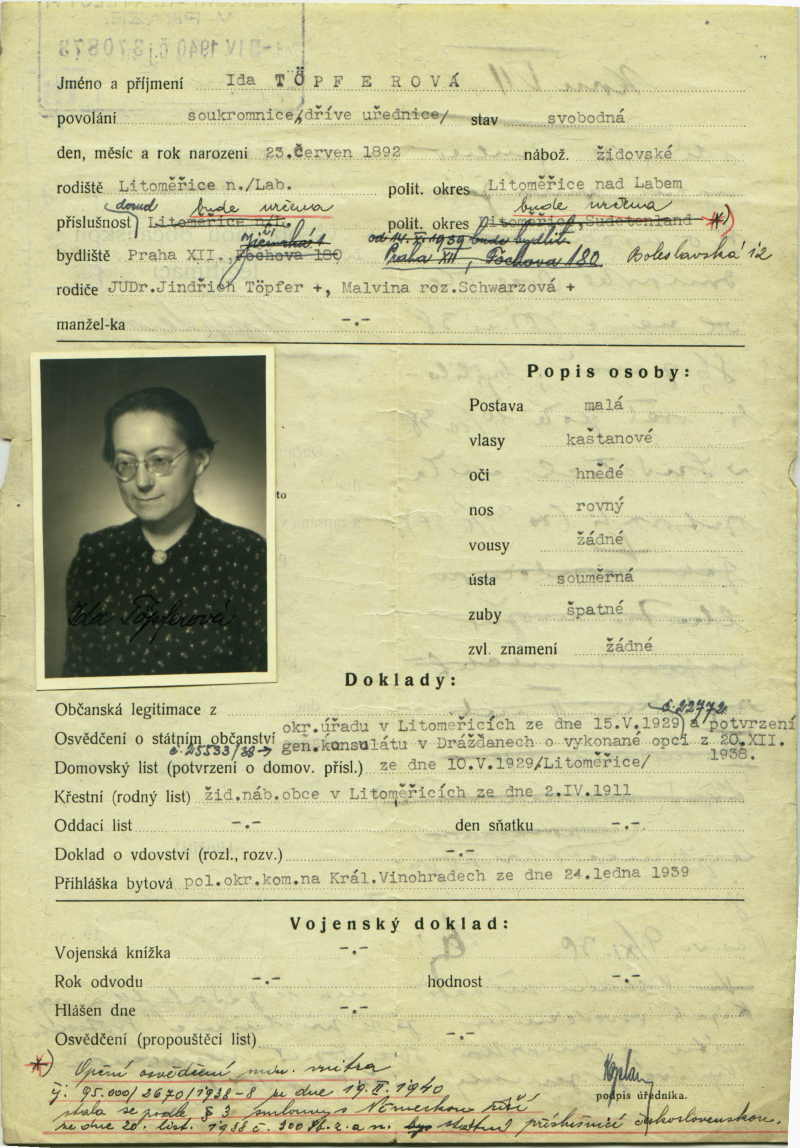 V PRAZE
-3 IV 1940 čj 370873
Jméno a příjmení Ida TÖPFEROVÁ
povolání soukromnice/dříve uřednice/ stav svobodná
den, měsíc a rok narození 23.červen 1892 nábož. židovské
rodiště Litoměřice n./Lab. polit. okres Litoměřice nad Labem
dosud bude určena bude určena
příslušnost Litoměřice n/L. polit. okres Litoměřice,Sudetenland *)
Jičínská 1 od 14. X. 1939 bude bydlit
bydliště Praha XII., Fochova 180 Praha XII, Fochova 180 Boleslavská 12
rodiče JUDr.Jindřich Töpfer +, Malvina roz.Schwarzová +
manžel-ka -.-
Popis osoby:
Postava malá
vlasy kaštanové
oči hnědé
to
nos rovný
vousy žádné
ústa souměrná
Ida Töpferová
zuby špatné
zvl. znamení žádné
Doklady:
Občanská legitimace z
č. 22772
Osvědčení o státním občanství okr.úřadu v Litoměřicích ze dne 15.V.1929) a potvrzení
č. 25533/38 → gen.konsulátu v Drážďanech o vykonané opci z 20.XII.
1938.
Domovský list (potvrzení o domov. přísl.) ze dne 10.V.1929/Litoměřice/
Křestní (rodný list) žid.náb.obce v Litoměřicích ze dne 2.IV.1911
Oddací list -.- den sňatku -.-
Doklad o vdovství (rozl., rozv.) -.-
Přihláška bytová pol.okr.kom.na Král.Vinohradech ze dne 24.ledna 1939
Vojenský doklad:
Vojenská knížka -.-
Rok odvodu -.- hodnost -.-
Hlášen dne -.-
Osvědčení (propouštěcí list) -.-
*) Opční osvědčení min. vnitra
čj. 95.000/2670/1938-8 ze dne 19. II. 1940
podpis úředníka.
stala se podle § 3 smlouvy s Německou říší
ze dne 20. list. 1938 č. 300 Sb. z. a n. státní příslušnicí československou.